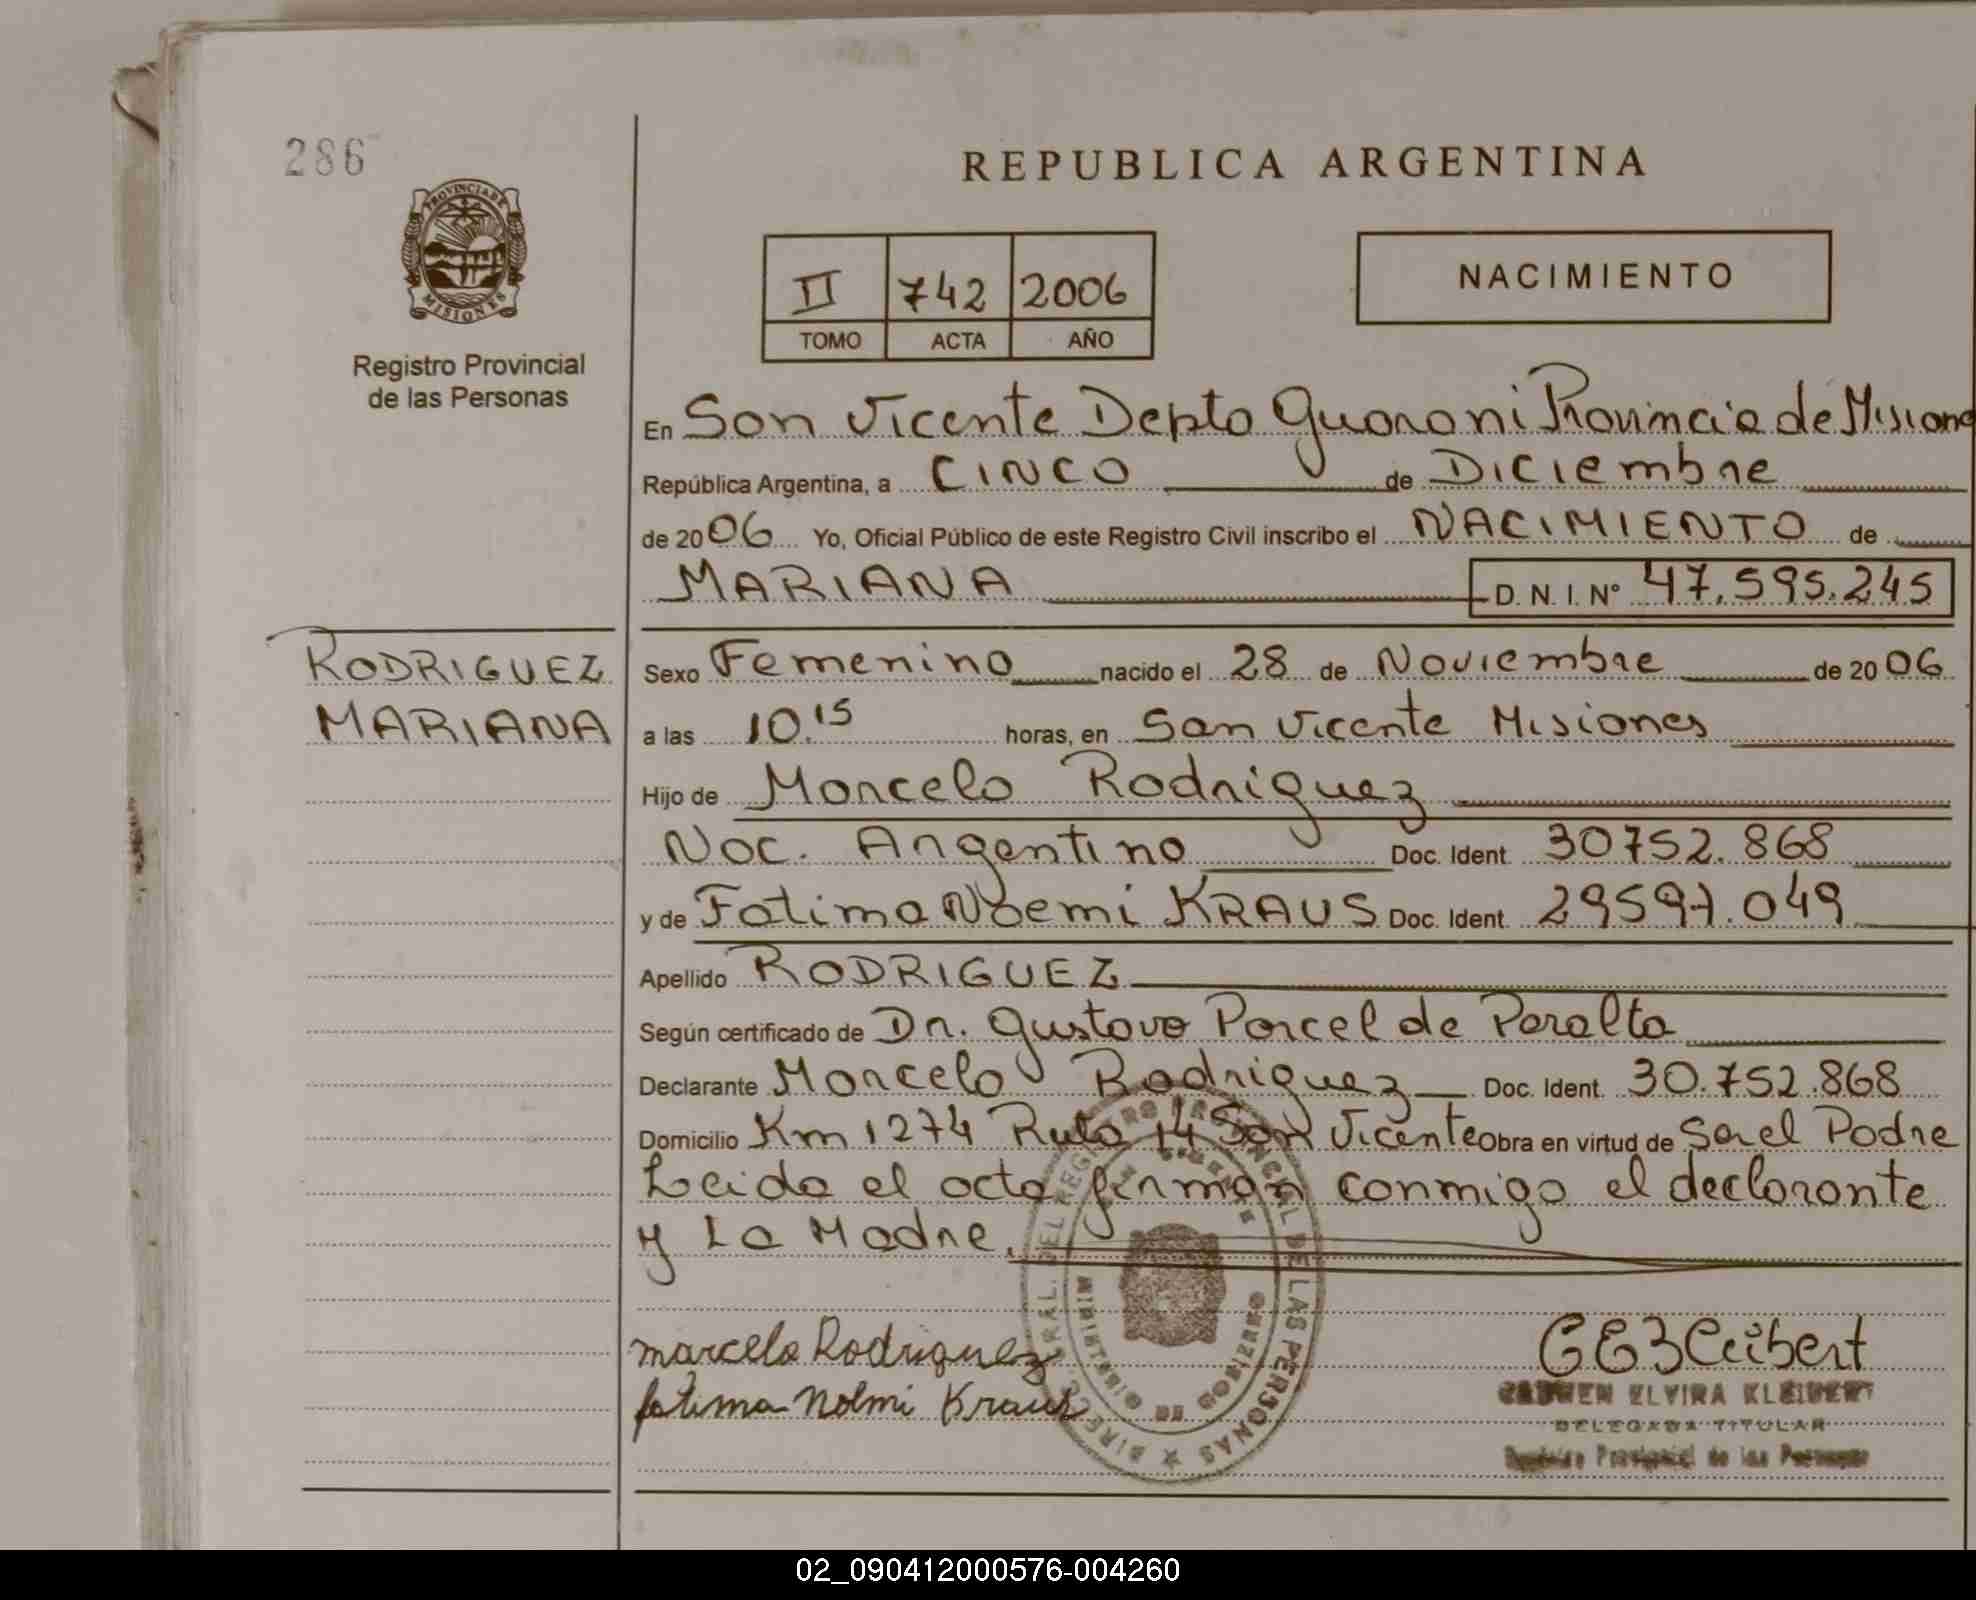 286
REPUBLICA ARGENTINA
PROVINCIA DE
MISIONES
Registro Provincial
de las Personas
II 742 2006
TOMO ACTA AÑO
NACIMIENTO
En San Vicente Depto Guarani Provincia de Misione
República Argentina, a CINCO de Diciembre
de 2006 Yo, Oficial Público de este Registro Civil inscribo el NACIMIENTO de
MARIANA D. N. I. Nº 47.595.245
RODRIGUEZ
MARIANA
Sexo Femenino nacido el 28 de Noviembre de 2006
a las 10.15 horas, en San Vicente Misiones
Hijo de Marcelo Rodriguez
Nac. Argentino Doc. Ident. 30752.868
y de Fatima Noemi KRAUS Doc. Ident. 29597.049
Apellido RODRIGUEZ
Según certificado de Dr. Gustavo Porcel de Peralta
Declarante Marcelo Rodriguez Doc. Ident. 30.752.868
Domicilio Km 1274 Ruta 14 San Vicente Obra en virtud de Ser el Padre
Leida el acta firman conmigo el declarante
y La Madre.
marcelo Rodriguez
fatima Nolmi Kraus
CARMEN ELVIRA KLEIBERT
DELEGADA TITULAR
Provincial de las Personas
02_090412000576-004260